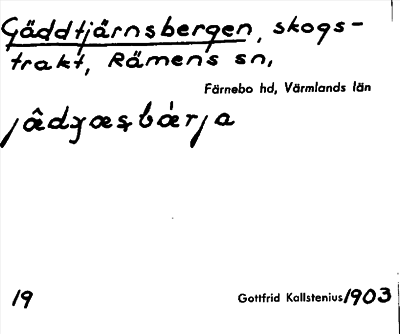 Gäddtjärnsbergen, skogs-
trakt, Rämens sn,
Färnebo hd, Värmlands län
19
Gottfrid Kallstenius 1903